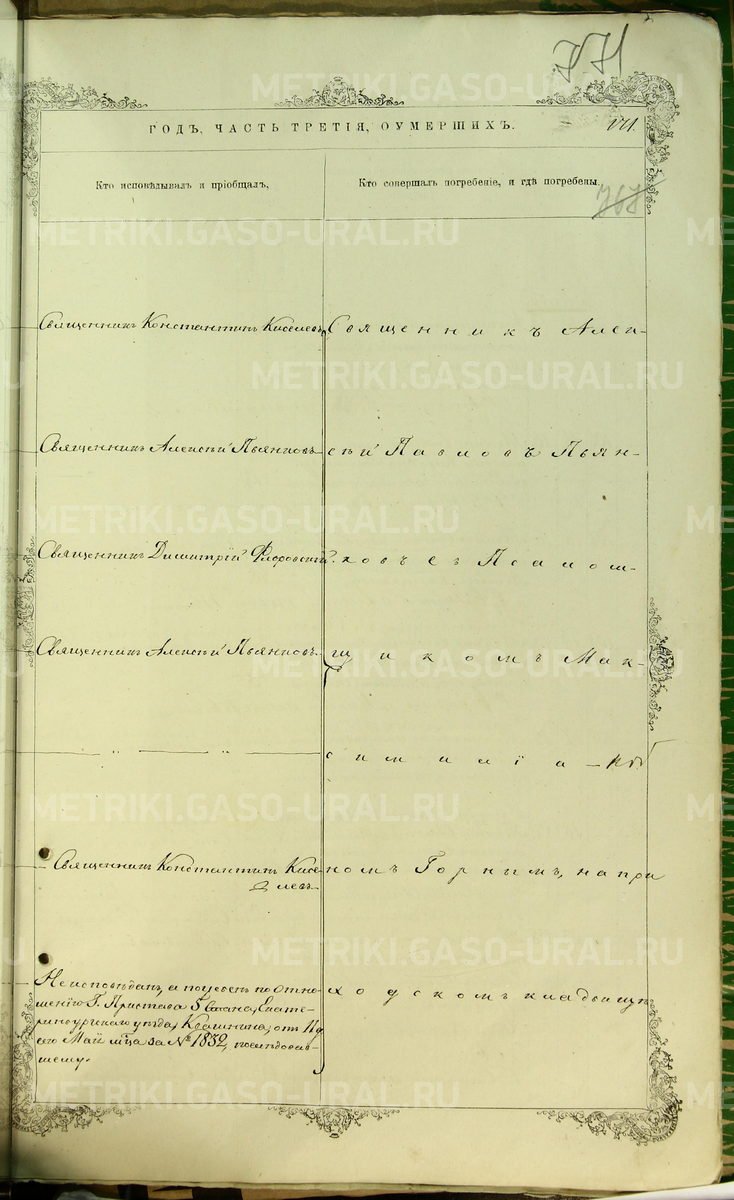 771
METRIKI.GASO-URAL.RU
ГОДЪ, ЧАСТЬ ТРЕТІЯ, ОУМЕРШИХЪ.
Кто исповѣдывалъ и пріобщалъ,
Кто совершалъ погребеніе, и гдѣ погребены.
767
Священникъ Константинъ Киселевъ
Священникъ Алек-
Священникъ Алексѣй Пьянковъ
сѣй Павловъ Пьян-
Священникъ Димитрій Флоровскій
ковъ съ Псалом-
Священникъ Алексѣй Пьянковъ
щикомъ Мак-
— „ —
симилiа-
Священникъ Константинъ Кисе-
левъ
номъ Горнымъ, на при
Неисповѣданъ, а погребен по отно-
шенію Г. Пристава 5 Стана, Екате-
ринбургскаго уѣзда, от
его Мая м̃ца за № 1832, послѣдовав-
шему.
ходскомъ кладбищѣ